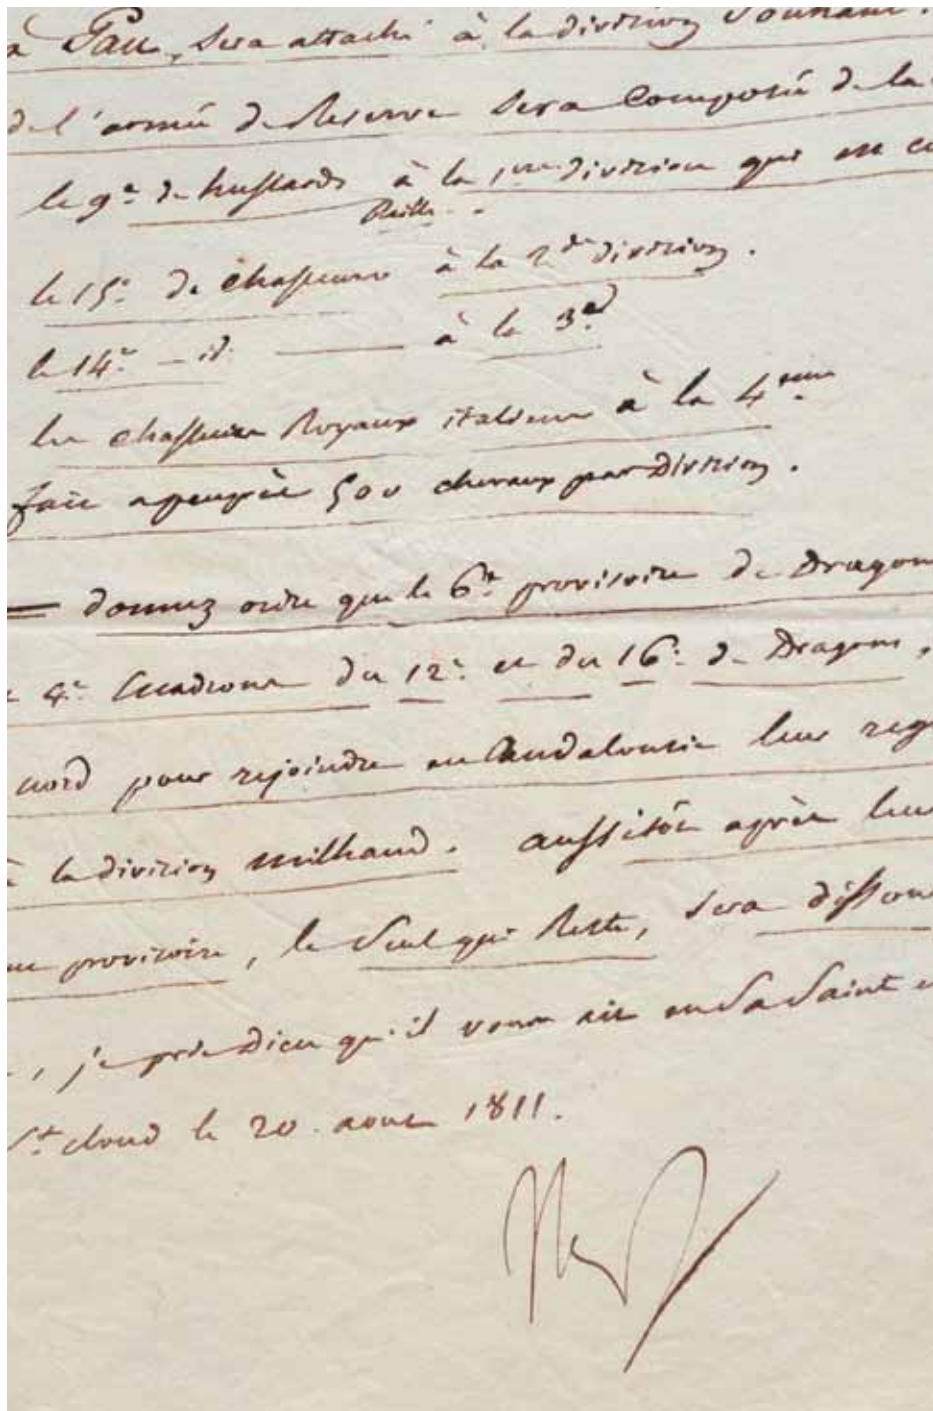 à Pau, sera attaché à la division Souham.
de l'armée de Reserve sera Composée de la
le 9.e de hussards à la 1ere division qui en
Reille
le 15.e de chasseurs à la 2de division.
le 14.e - id. —— à la 3.e
les chasseurs Royaux italiens à la 4eme
fait apeuprès 500 chevaux par Division.
= donnez ordre que le 6.e provisoire de Dragons
4.e Escadrons du 12.e et du 16.e de Dragons,
nord pour rejoindre en Andalousie leur reg
à la division Milhaud. aussitôt après leur
provisoire, le Seul qui Reste, sera dissous
, je prie Dieu qu'il vous ait en Sa Sainte
St. cloud le 20. aout 1811.
Nap